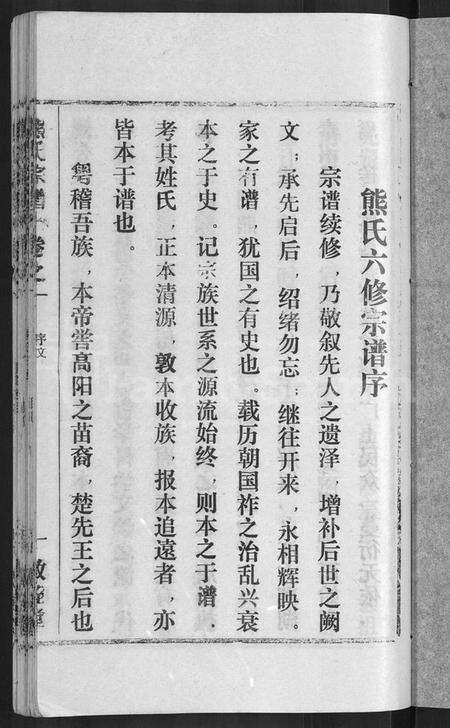 熊氏六修宗谱序
宗谱续修，乃敬叙先人之遗泽，增补后世之阙
文；承先启后，绍绪勿忘；继往开来，永相辉映。
家之有谱，犹国之有史也。载历朝国祚之治乱兴衰
本之于史。记宗族世系之源流始终，则本之于谱．
考其姓氏，正本清源，敦本收族，报本追远者，亦
皆本于谱也．
粤稽吾族，本帝喾高阳之苗裔，楚先王之后也
熊氏宗谱 卷之一 序文 一